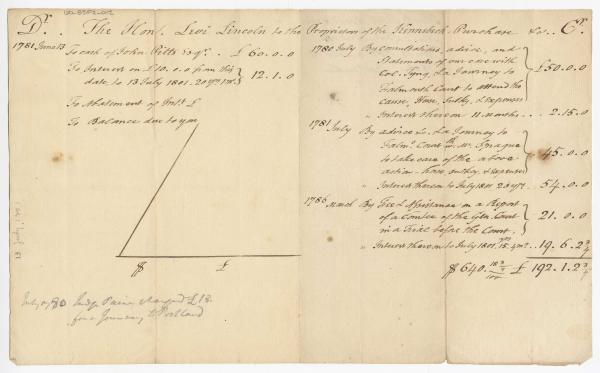 Dr. The Honl. Levi Lincoln to the Proprietors of the Kennebeck Purchase &c. Cr.
1781 June 13 To cash of John Pitts Esqr. £ 60.0.0
To Interest on £10.0.0 from this
date, to 13 July 1801. 20 yrs 1 mo. 12.1.0
To Abatement of Int. £
To Balance due to you
$ £
July 1780 Judge Paine charged £18.
for a Journey to Portland
1780 July By consultations, advice, and
Statements of our case with
Col. Tyng, & a Journey to
Falmouth Court to attend the
Cause, Horse, Sulky, & expenses £50.0.0
" Interest thereon 11 Months 2.15.0
1781 July By advice &c. & a Journey to
Falmo. Court Mr. Sprague
to take care of the above
action - horse, sulkey, & expenses 45.0.0
" Interest thereon to July 1801 20 yrs. 54.0.0
1786 March By Fee & Assistance on a Report
of a Comtee of the Genl. Court
in a Trial before the Court. 21.0.0
" Interest thereon to July 1801. 15 yrs 4 mo. 19.6.2 3/4
$ 640. £ 192.1.2 3/4